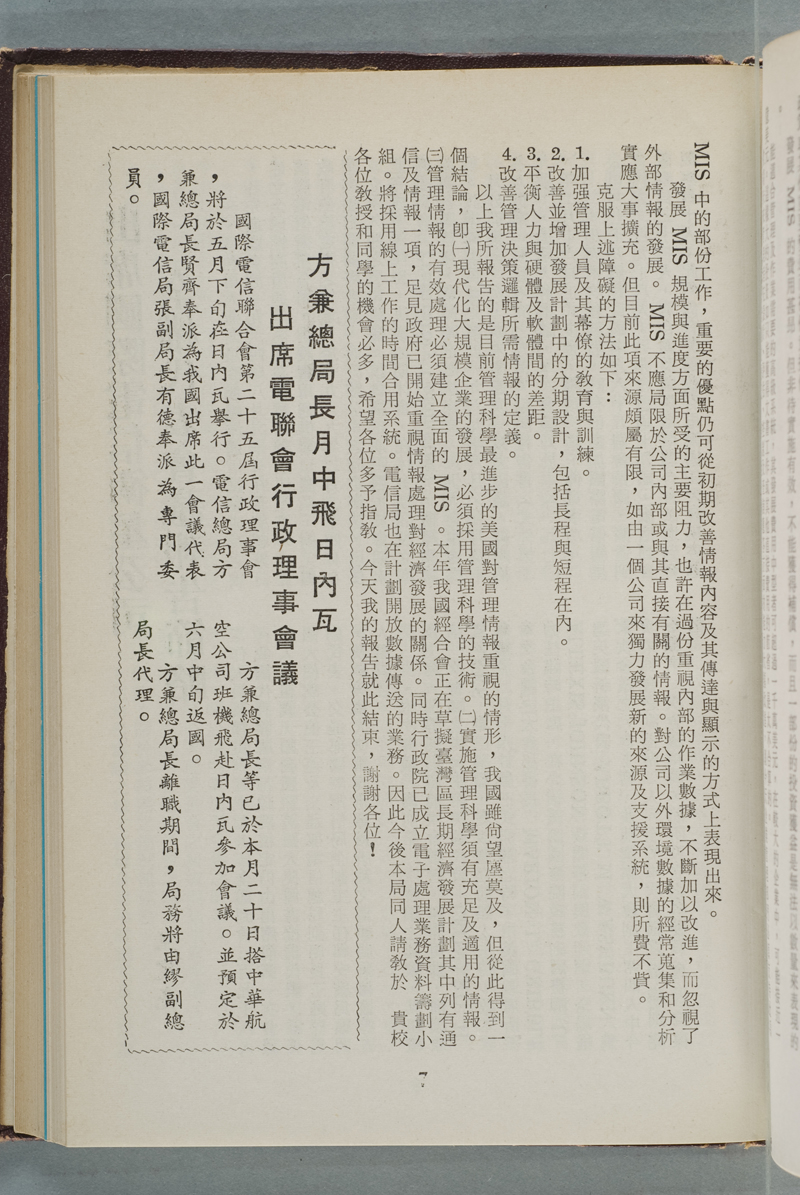 MIS 中的部份工作，重要的優點仍可從初期改善情報內容及其傳達與顯示的方式上表現出來。
發展 MIS 規模與進度方面所受的主要阻力，也許在過份重視內部的作業數據，不斷加以改進，而忽視了
外部情報的發展。 MIS 不應局限於公司內部或與其直接有關的情報。對公司以外環境數據的經常蒐集和分析
實應大事擴充。但目前此項來源頗屬有限，如由一個公司來獨力發展新的來源及支援系統，則所費不貲。
克服上述障礙的方法如下：
1.加强管理人員及其幕僚的敎育與訓練。
2.改善並增加發展計劃中的分期設計，包括長程與短程在內。
3.平衡人力與硬體及軟體間的差距。
4.改善管理決策邏輯所需情報的定義。
以上我所報告的是目前管理科學最進步的美國對管理情報重視的情形，我國雖尙望塵莫及，但從此得到一
個結論，卽㈠現代化大規模企業的發展，必須採用管理科學的技術。㈡實施管理科學須有充足及適用的情報。
㈢管理情報的有效處理必須建立全面的 MIS 。本年我國經合會正在草擬臺灣區長期經濟發展計劃其中列有通
信及情報一項，足見政府已開始重視情報處理對經濟發展的關係。同時行政院已成立電子處理業務資料籌劃小
組。將採用線上工作的時間合用系統。電信局也在計劃開放數據傳送的業務。因此今後本局同人請敎於 貴校
各位敎授和同學的機會必多，希望各位多予指敎。今天我的報告就此結束，謝謝各位！
方兼總局長月中飛日內瓦
出席電聯會行政理事會議
國際電信聯合會第二十五屆行政理事會
，將於五月下旬在日內瓦舉行。電信總局方
兼總局長賢齊奉派為我國出席此一會議代表
，國際電信局張副局長有德奉派為專門委
員。
方兼總局長等已於本月二十日搭中華航
空公司班機飛赴日內瓦參加會議。並預定於
六月中旬返國。
方兼總局長離職期間，局務將由繆副總
局長代理。
7